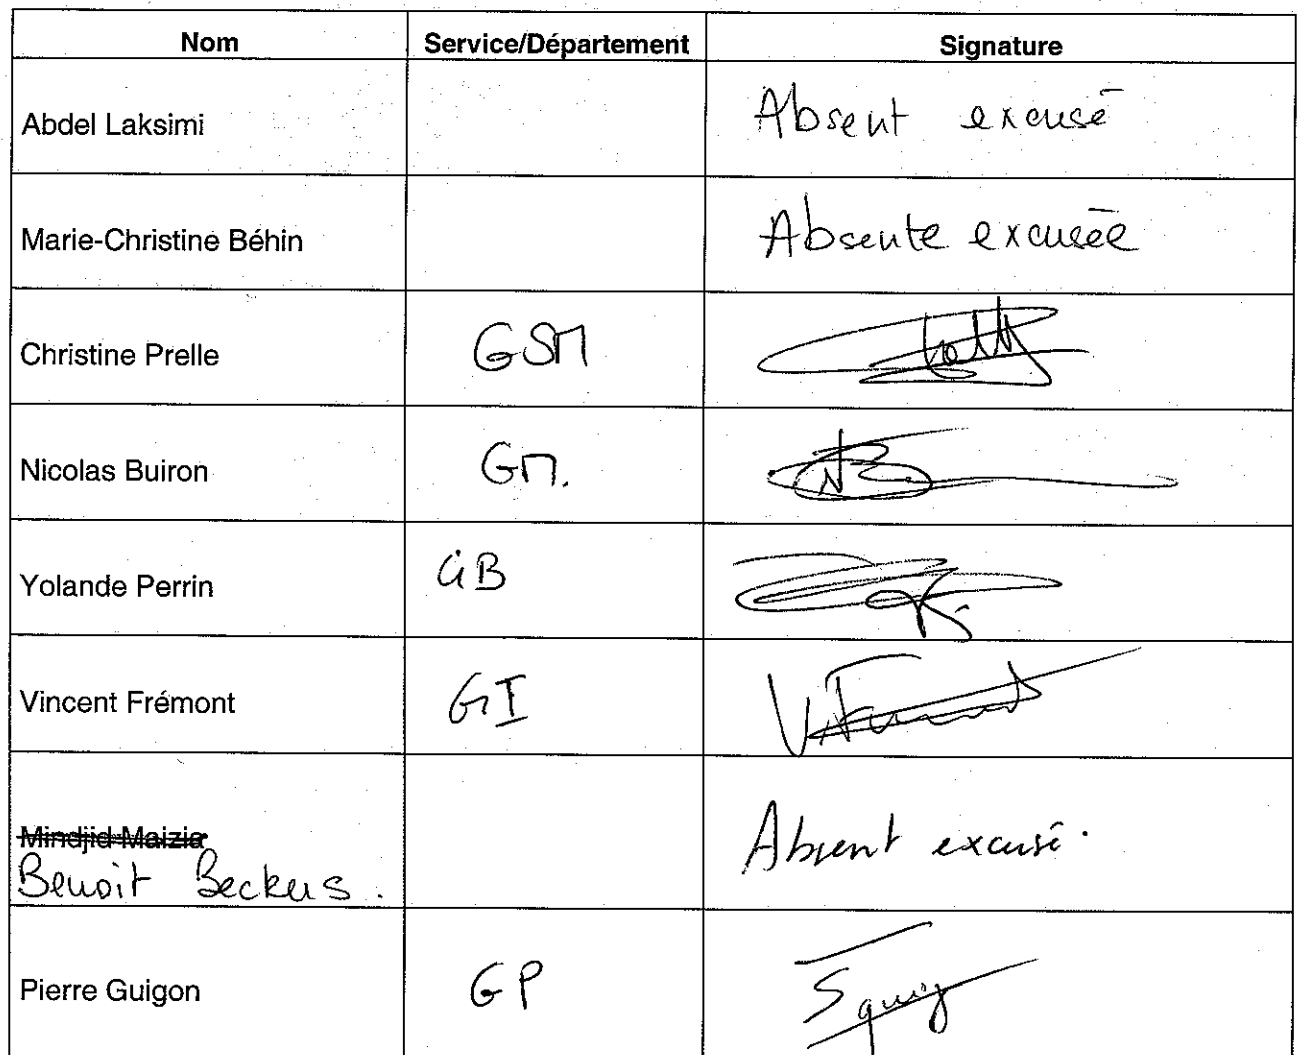 Nom Service/Département Signature
Abdel Laksimi Absent excusé
Marie-Christine Béhin Absente excusée
Christine Prelle GSM
Nicolas Buiron GM.
Yolande Perrin GB
Vincent Frémont GI V. Fremont
Mindjid Maizia Absent excusé.
Benoit Beckers.
Pierre Guigon GP